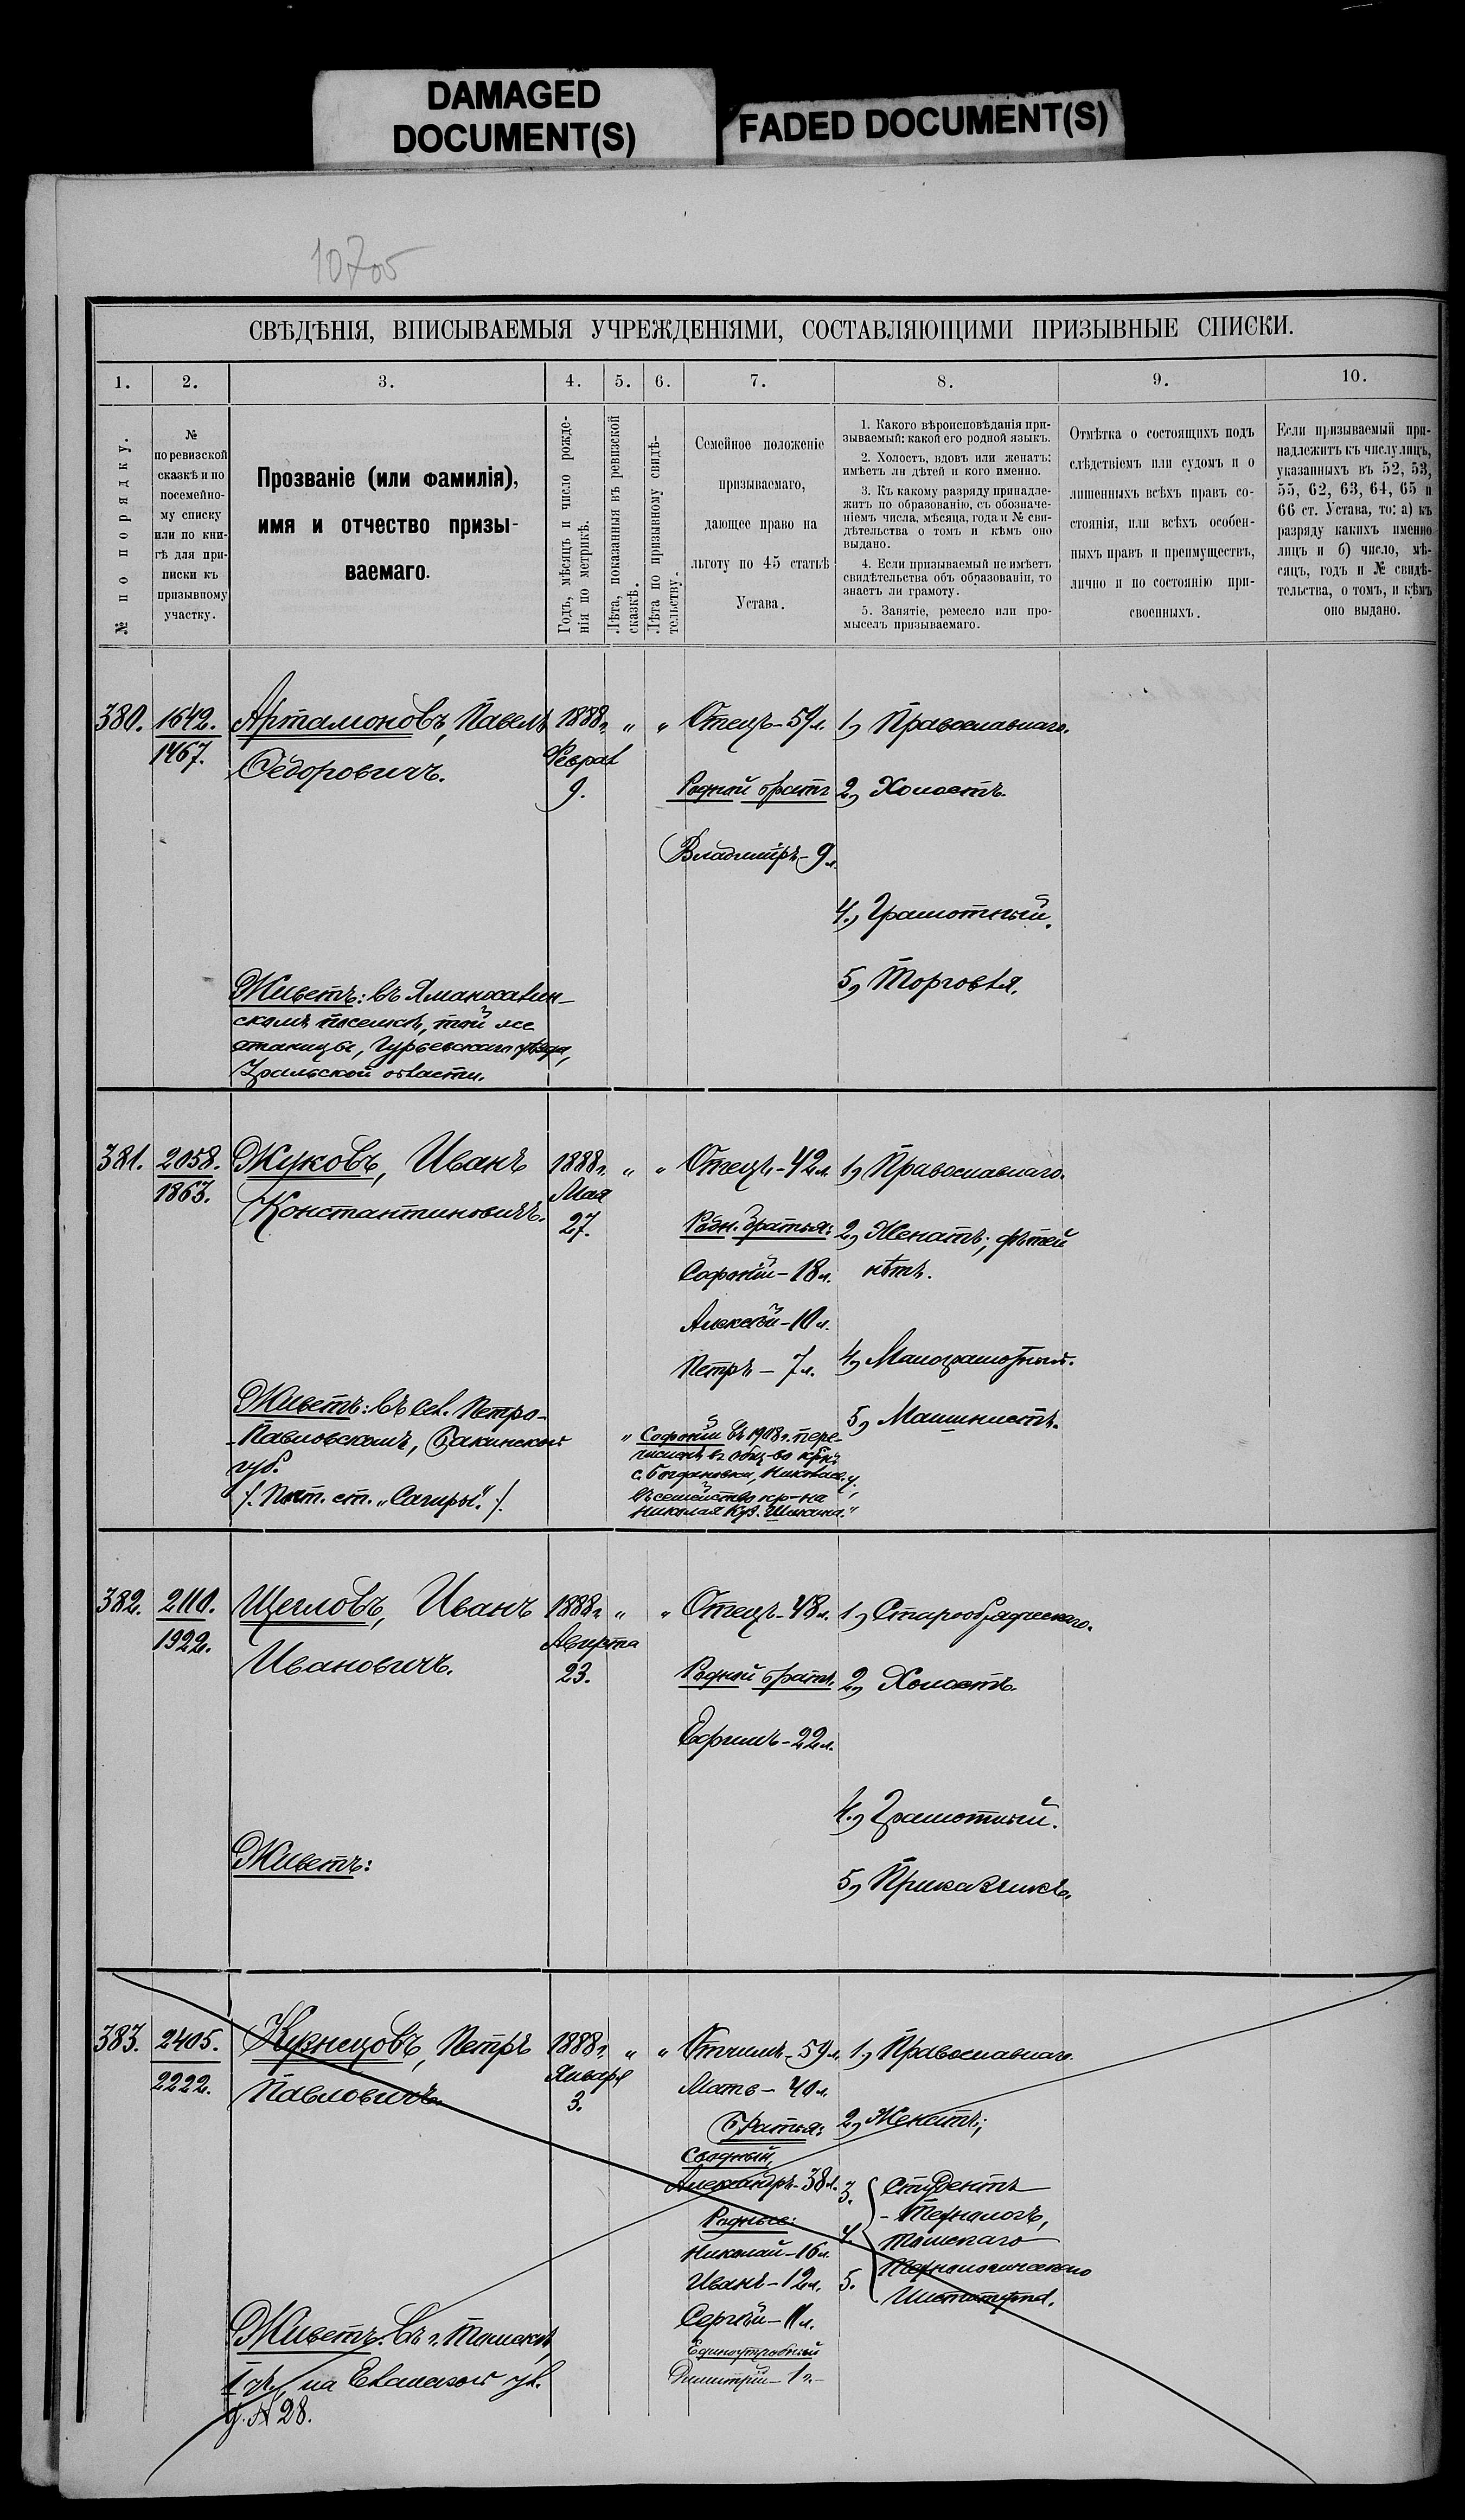 DAMAGED
DOCUMENT(S)
FADED DOCUMENT(S)
10705
СВѢДѢНІЯ, ВПИСЫВАЕМЫЯ УЧРЕЖДЕНІЯМИ, СОСТАВЛЯЮЩИМИ ПРИЗЫВНЫЕ СПИСКИ.
1.
2.
3.
4.
5.
6.
7.
8.
9.
10.
№ по порядку.
№
по ревизской
сказкѣ и по
посемейно-
му списку
или по кни-
гѣ для при-
писки къ
призывному
участку.
Прозваніе (или фамилія),
имя и отчество призы-
ваемаго.
Годъ, мѣсяцъ и число рожде-
нія по метрикѣ.
Лѣта, показанныя въ ревизской
сказкѣ.
Лѣта по призывному свидѣ-
тельству.
Семейное положеніе
призываемаго,
дающее право на
льготу по 45 статьѣ
Устава.
1. Какого вѣроисповѣданія при-
зываемый: какой его родной языкъ.
2. Холостъ, вдовъ или женатъ:
имѣетъ ли дѣтей и кого именно.
3. Къ какому разряду принадле-
житъ по образованію, съ обозначе-
ніемъ числа, мѣсяца, года и № сви-
дѣтельства о томъ и кѣмъ оно
выдано.
4. Если призываемый не имѣетъ
свидѣтельства объ образованіи, то
знаетъ ли грамоту.
5. Занятіе, ремесло или про-
мыселъ призываемаго.
Отмѣтка о состоящихъ подъ
слѣдствіемъ или судомъ и о
лишенныхъ всѣхъ правъ со-
стоянія, или всѣхъ особен-
ныхъ правъ и преимуществъ,
лично и по состоянію при-
своенныхъ.
Если призываемый при-
надлежитъ къ числу лицъ,
указанныхъ въ 52, 53,
55, 62, 63, 64, 65 и
66 ст. Устава, то: а) къ
разряду какихъ именно
лицъ и б) число, мѣ-
сяцъ, годъ и № свидѣ-
тельства, о томъ, и кѣмъ
оно выдано.
380.
1642.
1467.
Артамоновъ, Павелъ
Ѳедоровичъ.
1888 г.
Феврал
9.
" "
Отецъ - 57 л.
Родной братъ
Владиміръ - 9 л.
1, Православнаго.
2, Холостъ.
4., Грамотный.
5, Торговля.
Живетъ: въ Яманхалин-
скомъ поселкѣ, той же
станицы, Гурьевскаго уѣзда,
Уральской области.
381.
2058.
1863.
Жуковъ, Иванъ
Константиновичъ.
1888 г.
Мая
27.
" "
Отецъ - 42 л.
Родн. братья:
Софоній - 18 л.
Алексѣй - 10 л.
Петръ - 7 л.
1, Православнаго.
2, Женатъ; дѣтей
нѣтъ.
4, Малограмотный.
5, Машинистъ.
Живетъ: въ сел. Петро-
-Павловскомъ, Бакинской
губ.
/. Почт. ст. „Сагиры“. /.
" Софоній въ 1908 г. пере-
численъ въ общ-во кр-нъ
с. Богдановки, Николаев. у.,
въ семейство кр-на
Николая
382.
2110.
1922.
Щегловъ, Иванъ
Ивановичъ.
1888 г.
Августа
23.
" "
Отецъ - 48 л.
Родной братъ.
Ефимъ - 22 л.
1, Старообрядческаго.
2, Холостъ.
4., Грамотный.
5, Приказчикъ.
Живетъ:
383.
2405.
2222.
Кузнецовъ, Петръ
Павловичъ.
1888 г.
Января
3.
" "
Отчимъ - 59 л.
Мать - 40 л.
Братья:
Сводный,
Александръ - 38 л.
Родные:
Николай - 16 л.
Иванъ - 12 л.
Сергѣй - 11 л.
Единоутробный
Димитрій - 1 г. -
1, Православнаго.
2, Женатъ;
3. Студентъ
- Технологъ,
4. Томскаго
Технологическаго
5. Института.
Живетъ: въ г. Томскѣ,
I уч., на Еланской ул.
д. № 28.